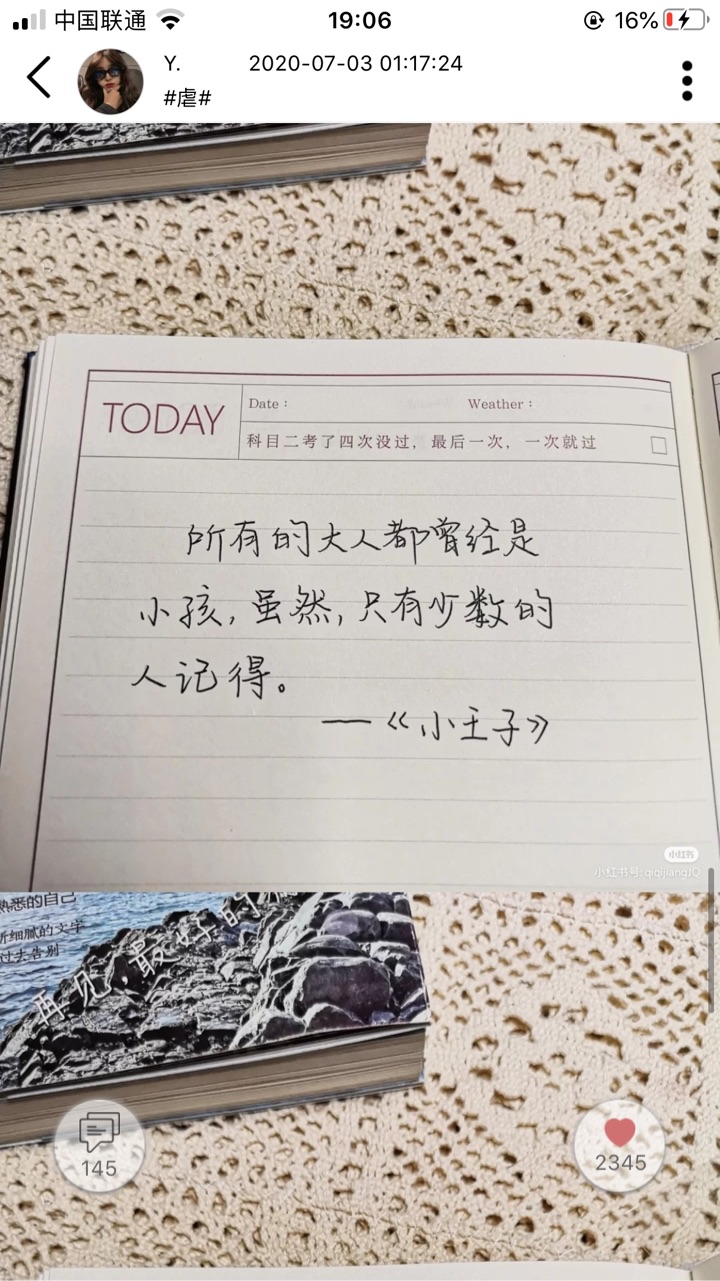 中国联通
19:06
16%
Y.
2020-07-03 01:17:24
#虐#
TODAY
Date :
Weather :
科目二考了四次没过，最后一次，一次就过
所有的大人都曾经是
小孩，虽然，只有少数的
人记得。
——《小王子》
小红书
小红书号: qiqijiangJQ
熟悉的自己
细腻的文字
过去告别
再见，最好的
145
2345